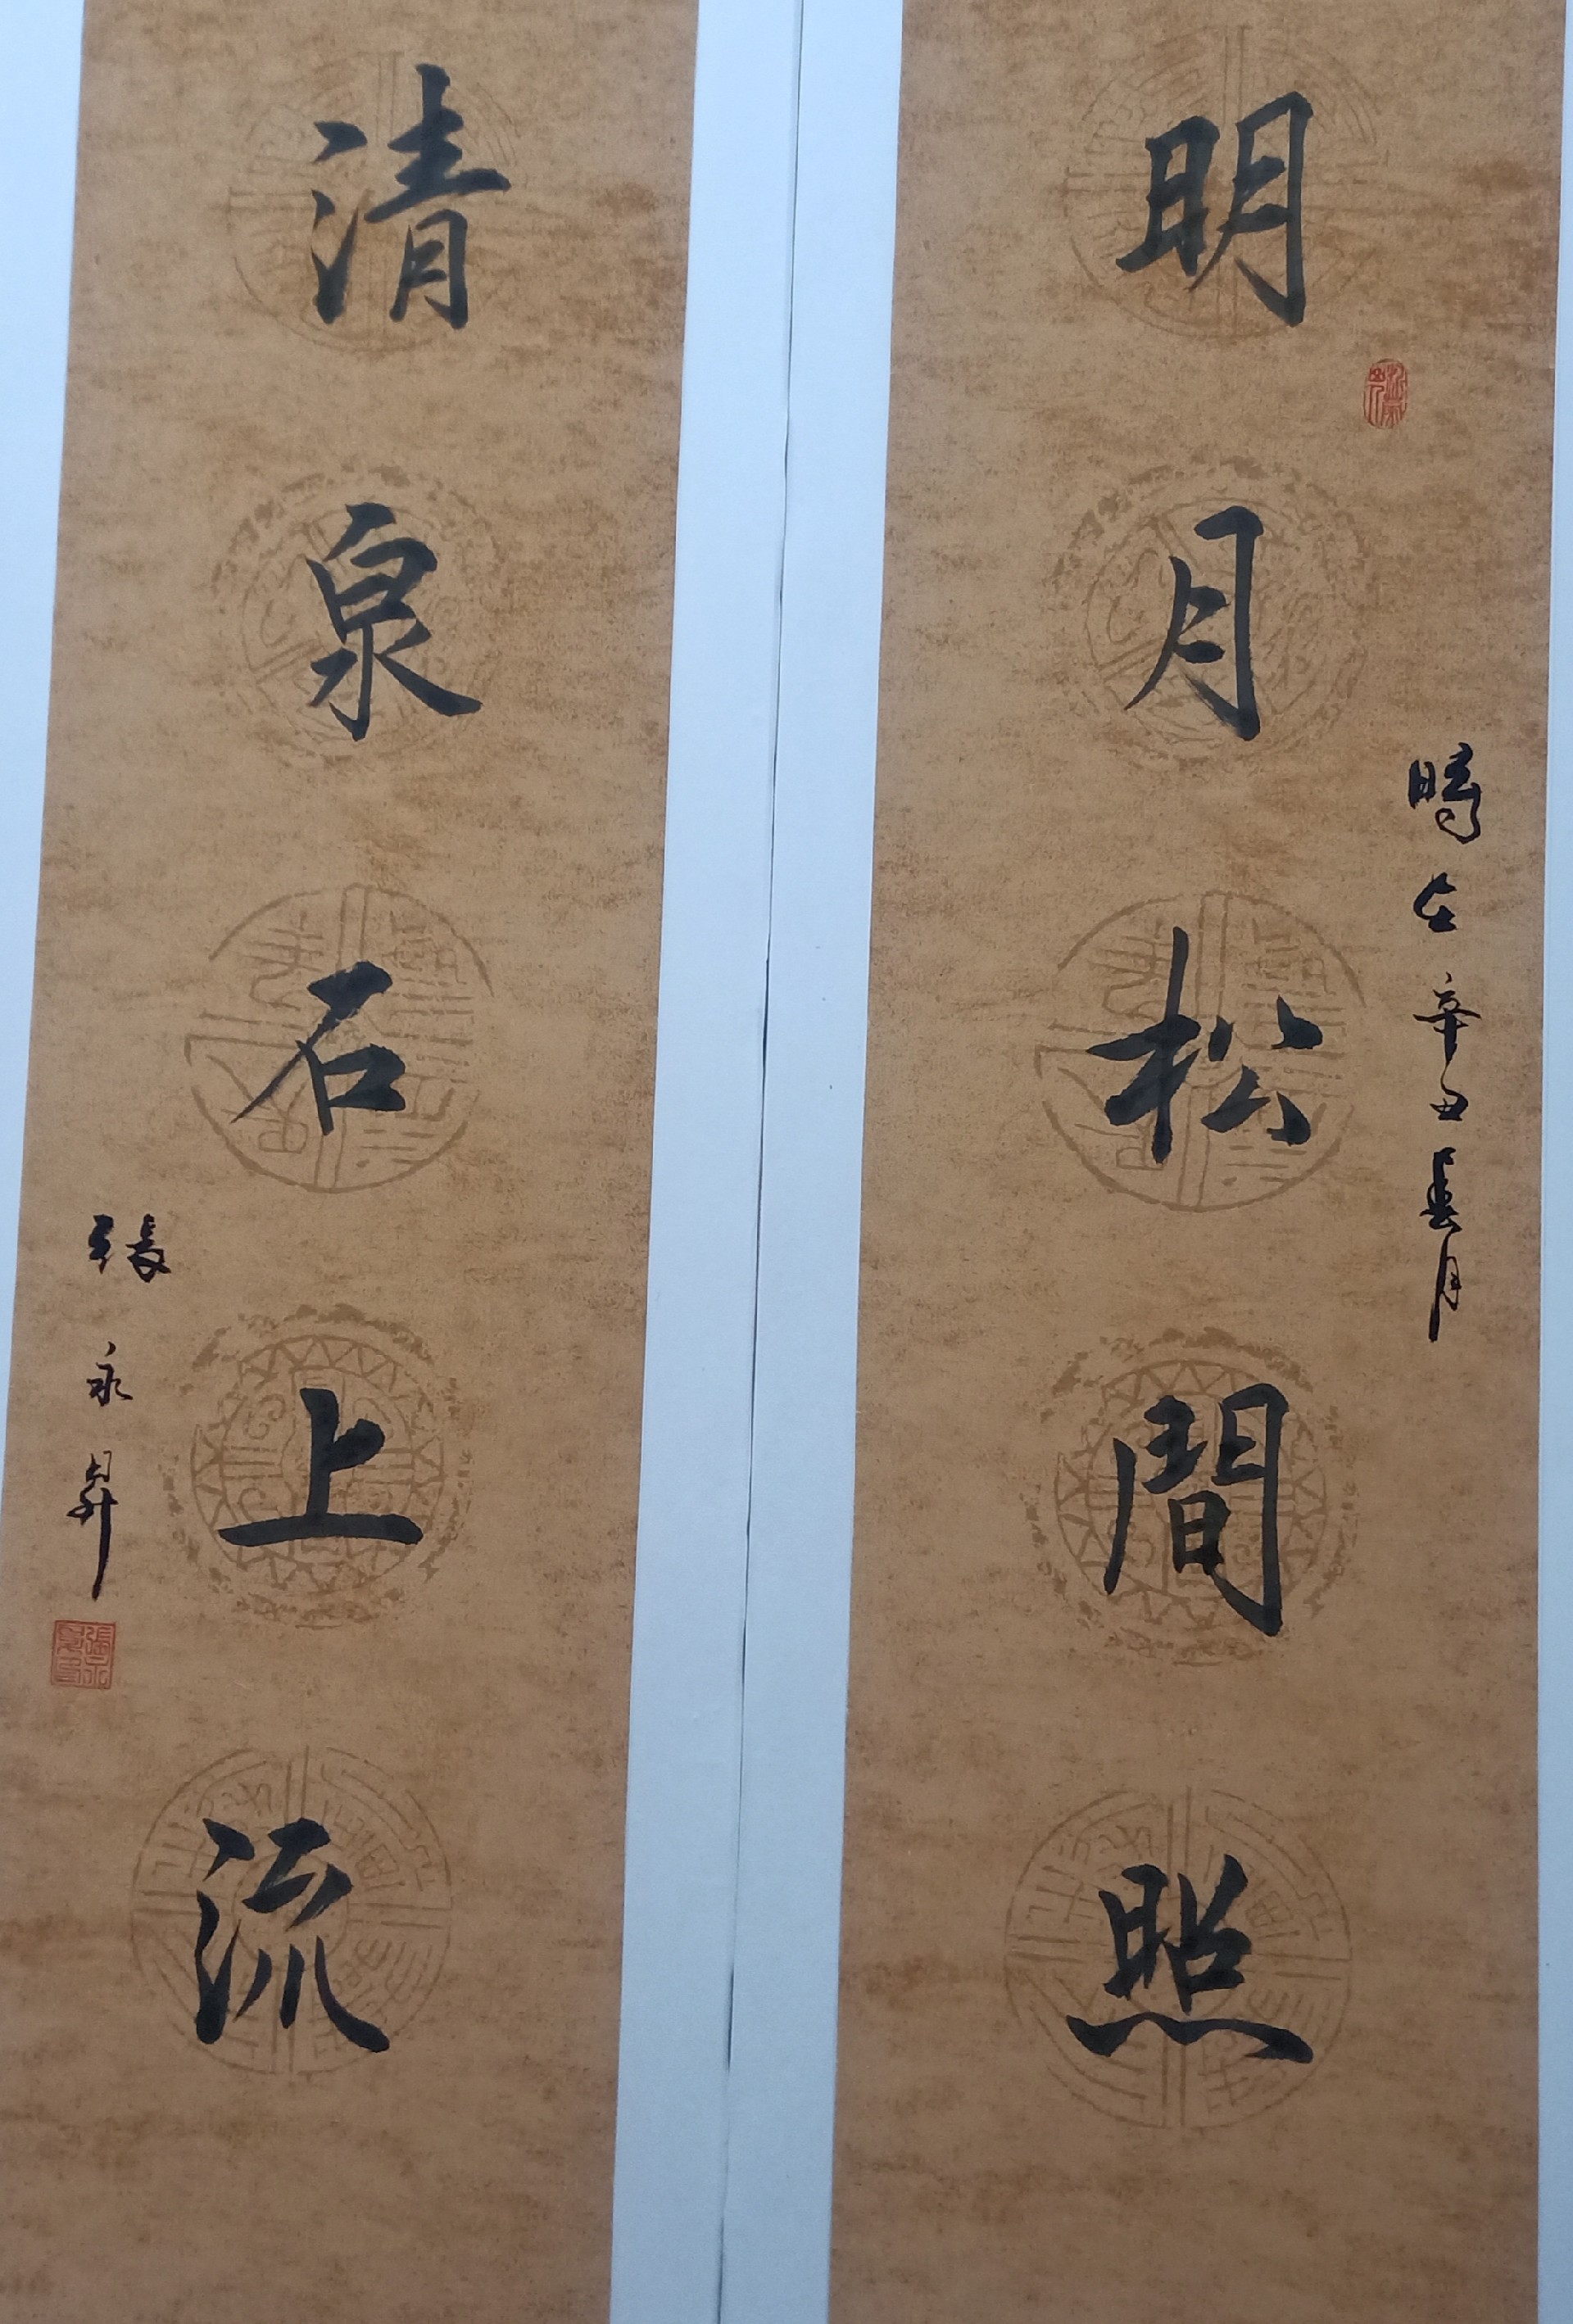 明月松間照
時在辛丑春月
清泉石上流
張永昇